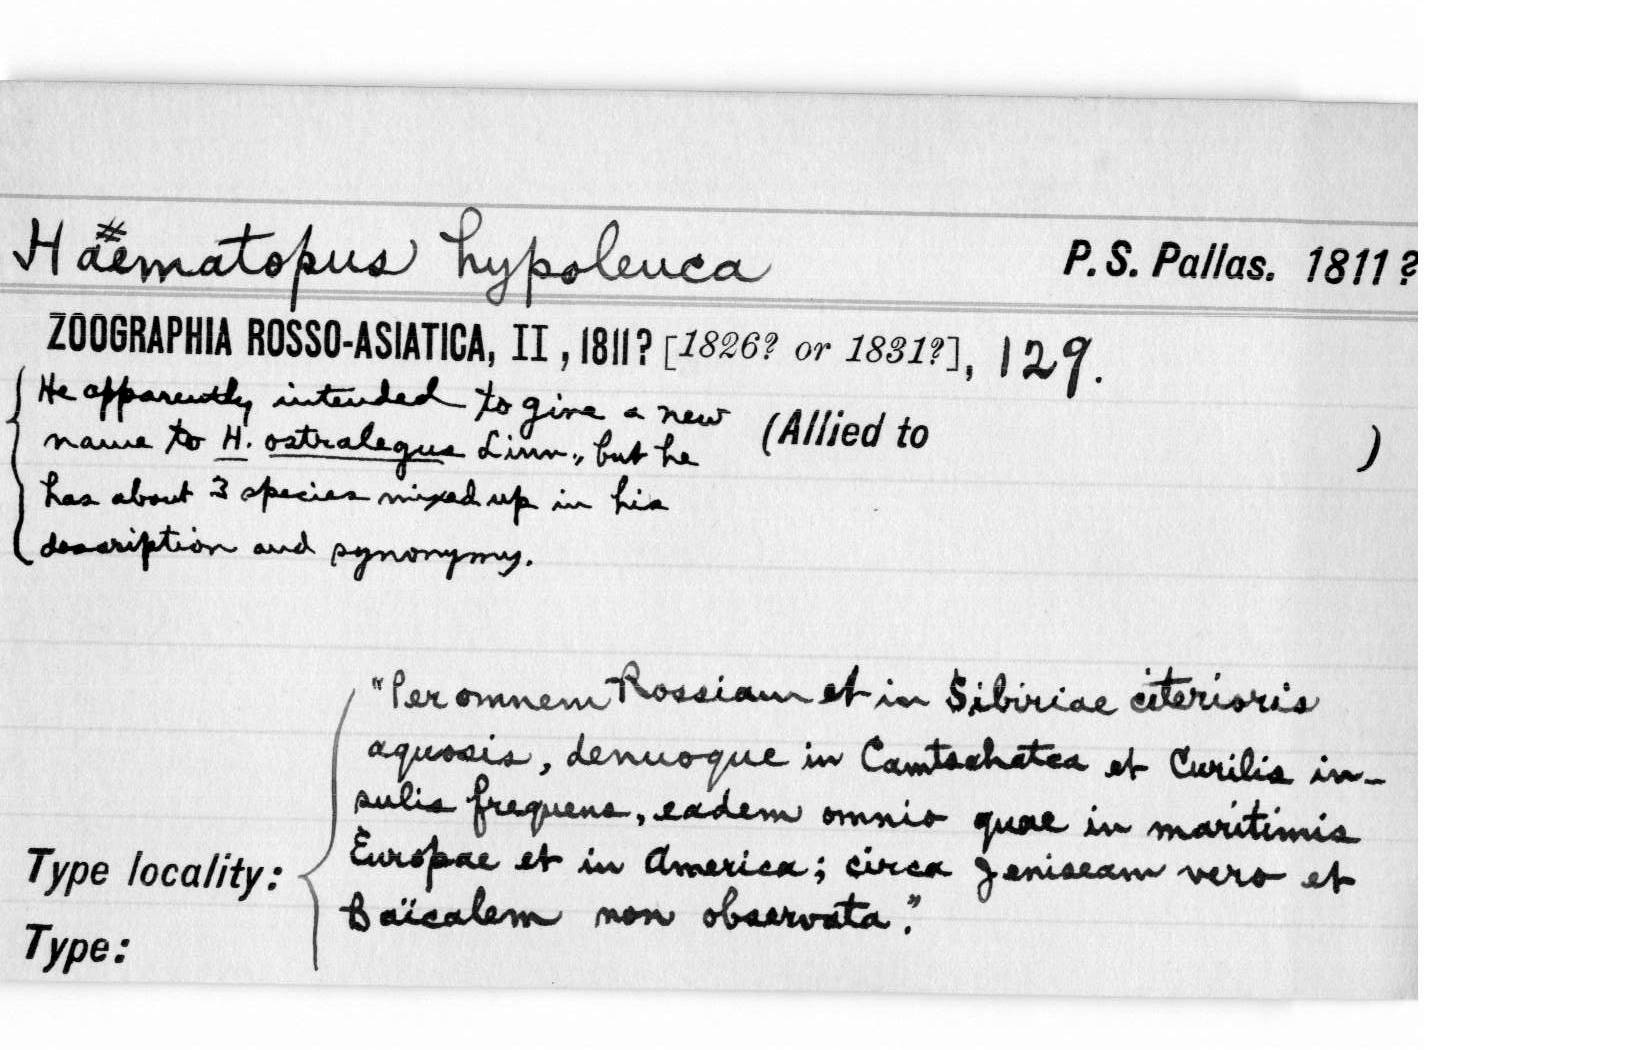 Haematopus hypoleuca P. S. Pallas. 1811?
ZOOGRAPHIA ROSSO-ASIATICA, II, 1811? [1826? or 1831?], 129.
He apparently intended to give a new
name to H. ostralegus Linn., but he
has about 3 species mixed up in his
description and synonymy.
(Allied to )
"Per omnem Rossiam et in Sibiriae citerioris
aquosis, denuoque in Camtschatca et Curilis in-
sulis frequens, eadem omnio quae in maritimis
Europae et in America; circa Jeniseam vero et
Baïcalem non observata."
Type locality:
Type: